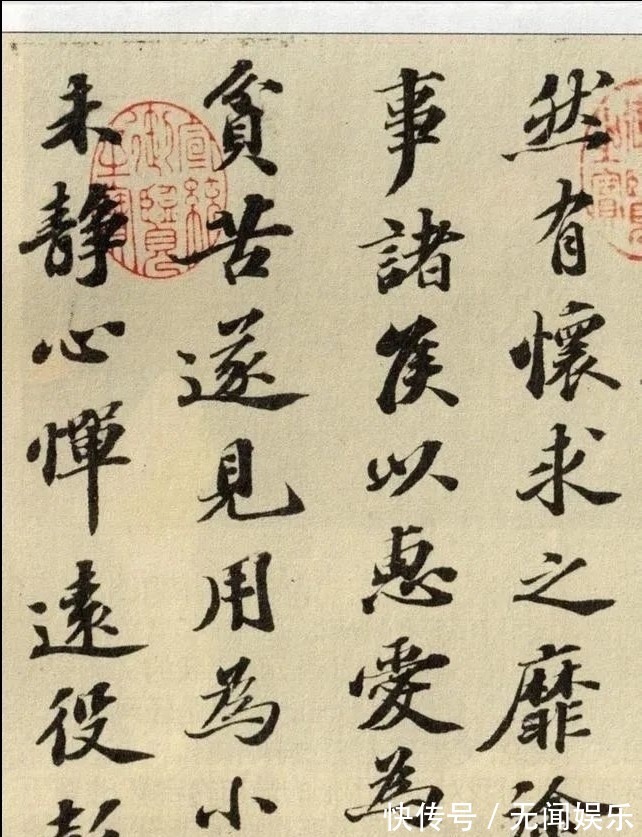 然有懷求之靡途
事諸侯以惠愛為
貧苦遂見用為小
未静心憚遠役彭
宣統御覽之寶
快传号 / 无闻娱乐